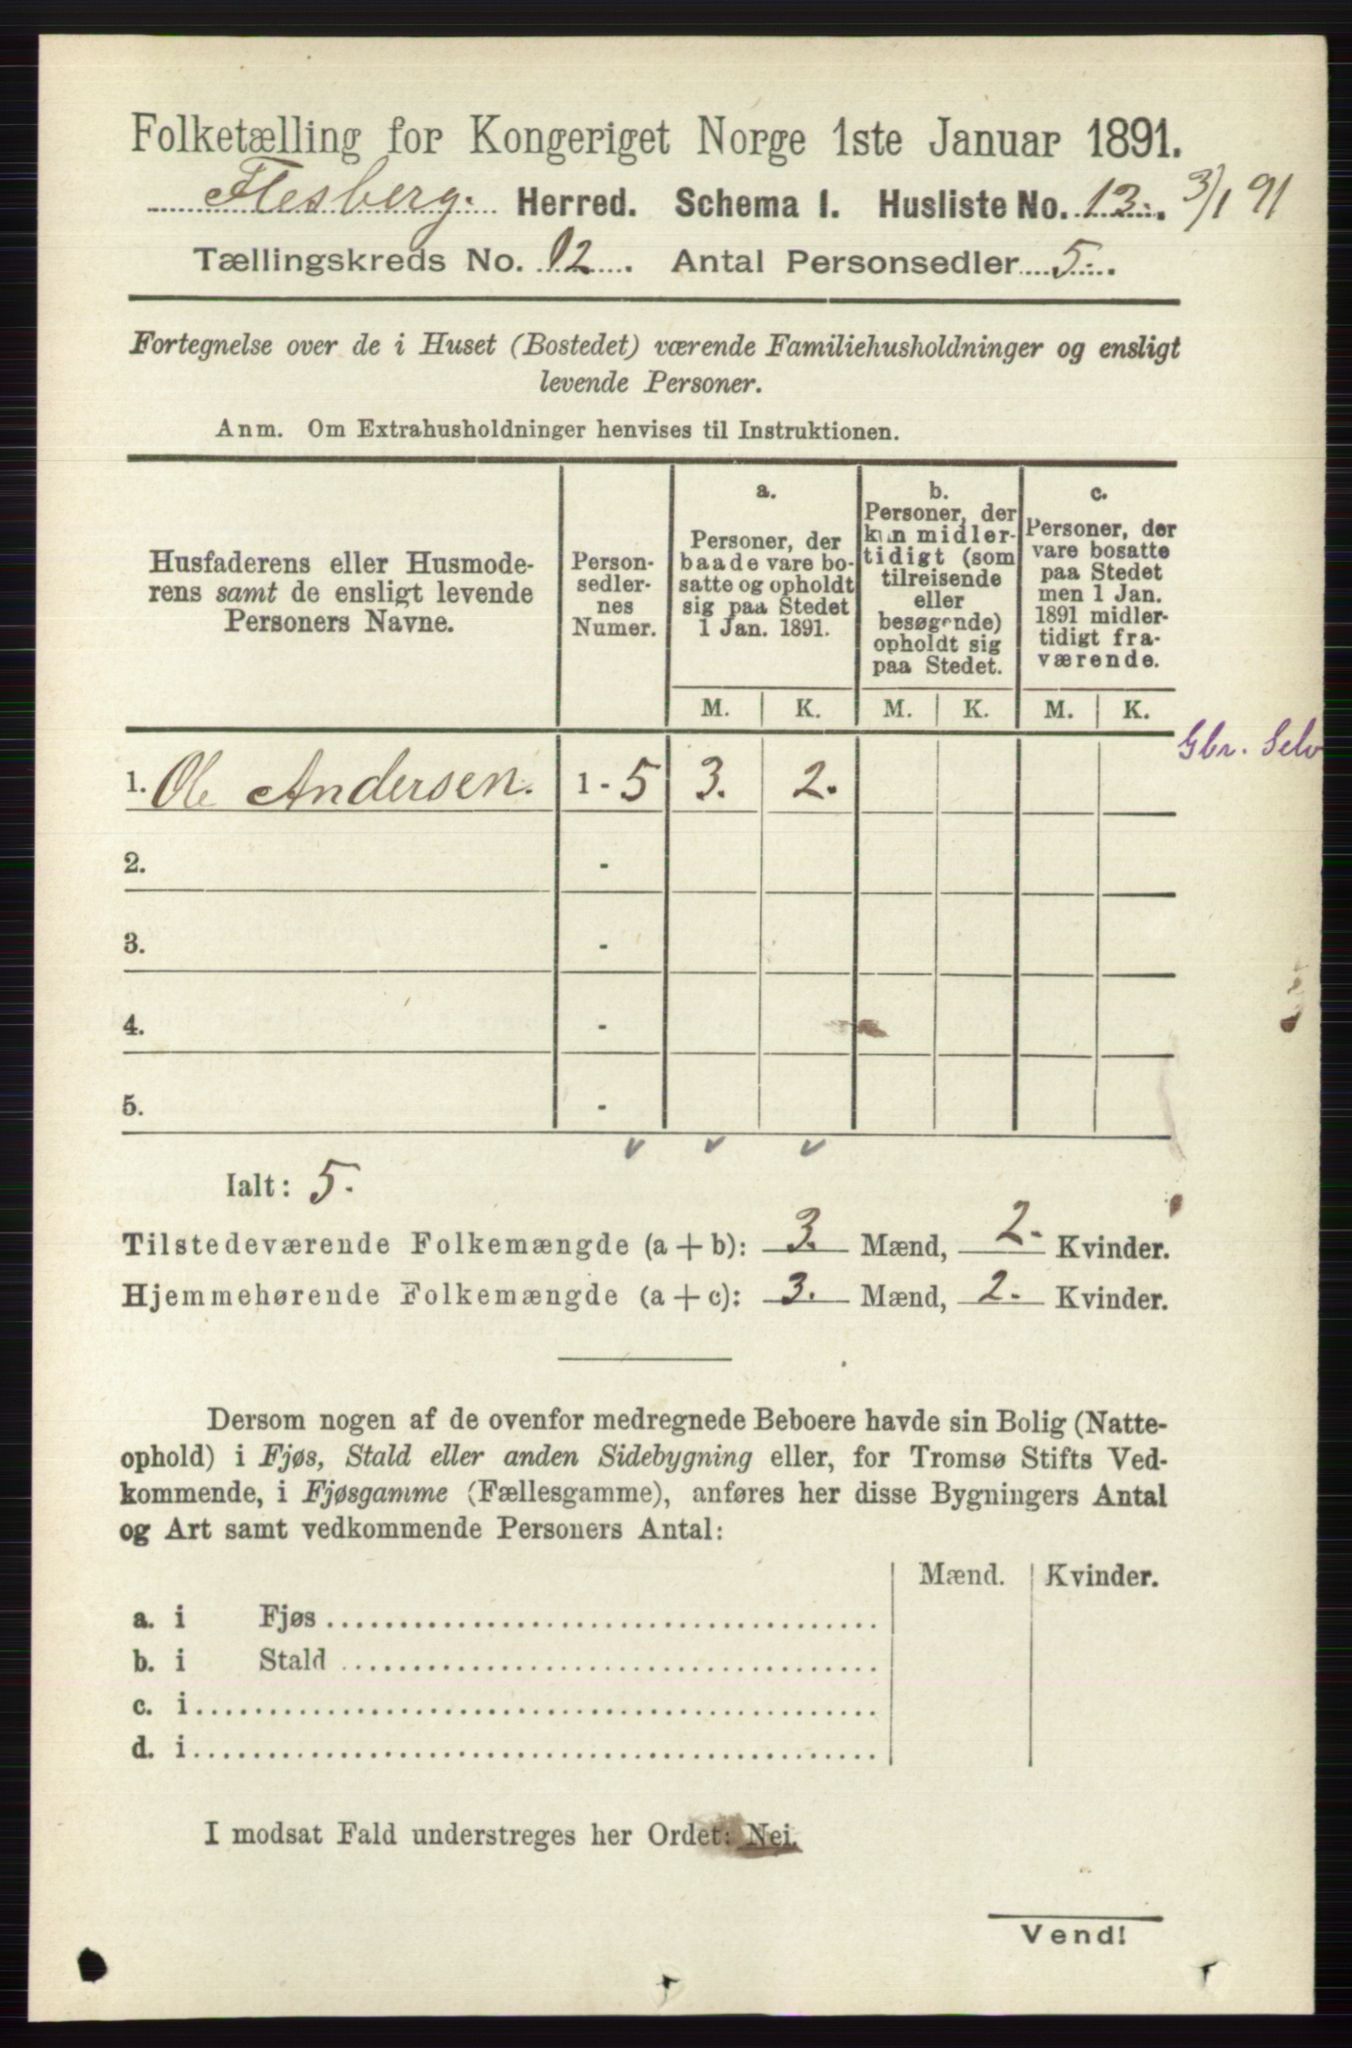 Folketælling for Kongeriget Norge 1ste Januar 1891.
Flesberg. Herred. Schema 1. Husliste No. 13. 3/1 91
Tællingskreds No. 12. Antal Personsedler 5.
Fortegnelse over de i Huset (Bostedet) værende Familiehusholdninger og ensligt
levende Personer.
Anm. Om Extrahusholdninger henvises til Instruktionen.
Husfaderens eller Husmode-
rens samt de ensligt levende
Personers Navne.
Person-
sedler-
nes
Numer.
a.
Personer, der
baade vare bo-
satte og opholdt
sig paa Stedet
1 Jan. 1891.
b.
Personer, der
kun midler-
tidigt (som
tilreisende
eller
besøgende)
opholdt sig
paa Stedet.
c.
Personer, der
vare bosatte
paa Stedet
men 1 Jan.
1891 midler-
tidigt fra-
værende.
M. K. M. K. M. K.
1. Ole Andersen. 1 - 5 3. 2. Gbr. Selv
2. -
3. -
4. -
5. -
Ialt: 5.
Tilstedeværende Folkemængde (a + b): 3. Mænd, 2. Kvinder.
Hjemmehørende Folkemængde (a + c): 3. Mænd, 2. Kvinder.
Dersom nogen af de ovenfor medregnede Beboere havde sin Bolig (Natte-
ophold) i Fjøs, Stald eller anden Sidebygning eller, for Tromsø Stifts Ved-
kommende, i Fjøsgamme (Fællesgamme), anføres her disse Bygningers Antal
og Art samt vedkommende Personers Antal:
Mænd. Kvinder.
a. i Fjøs
b. i Stald
c. i
d. i
I modsat Fald understreges her Ordet: Nei.
Vend!